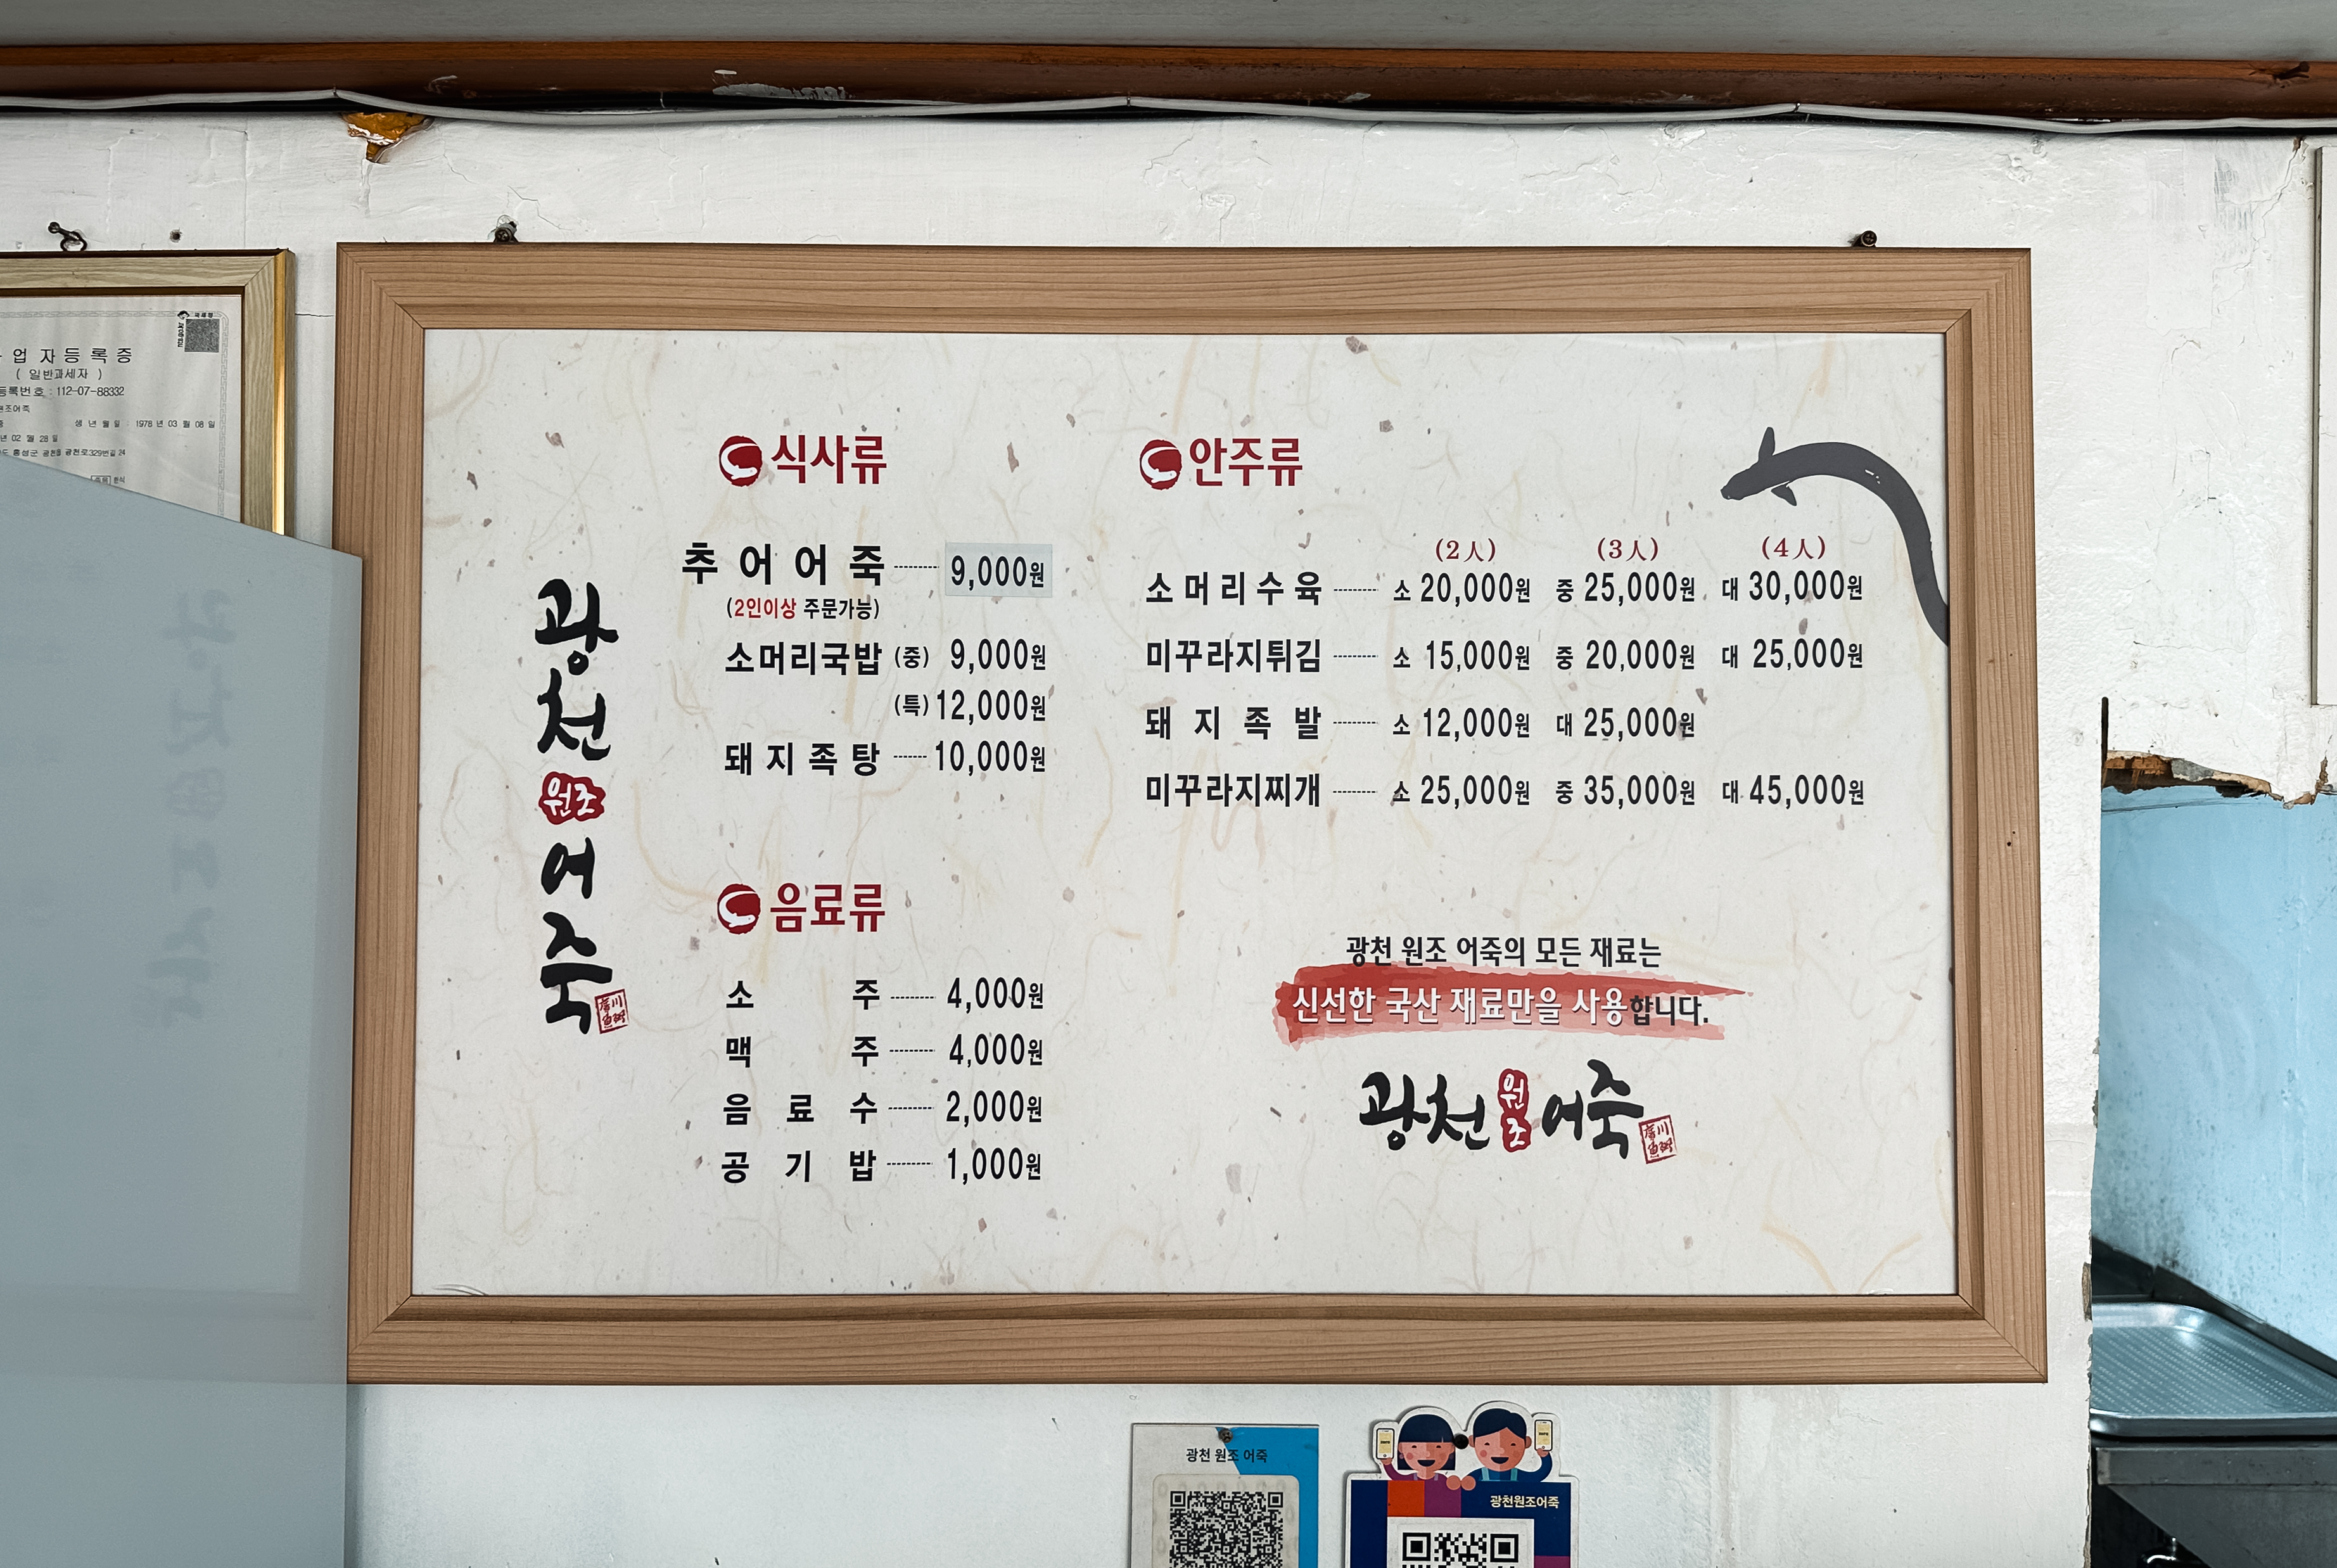 업자등록증
( 일반과세자 )
등록번호 : 112-07-88332
원조어죽
생 년 월 일 : 1978 년 03 월 08 일
년 02 월 28 일
홍성군 광천읍 광천로329번길 24
광천
원조
어죽
식사류
추어어죽 9,000원
(2인이상 주문가능)
소머리국밥 (중) 9,000원
(특) 12,000원
돼지족탕 10,000원
음료류
소주 4,000원
맥주 4,000원
음료수 2,000원
공기밥 1,000원
안주류
(2人) (3人) (4人)
소머리수육 소 20,000원 중 25,000원 대 30,000원
미꾸라지튀김 소 15,000원 중 20,000원 대 25,000원
돼지족발 소 12,000원 대 25,000원
미꾸라지찌개 소 25,000원 중 35,000원 대 45,000원
광천 원조 어죽의 모든 재료는
신선한 국산 재료만을 사용합니다.
광천 원조 어죽
광천 원조 어죽
광천원조어죽